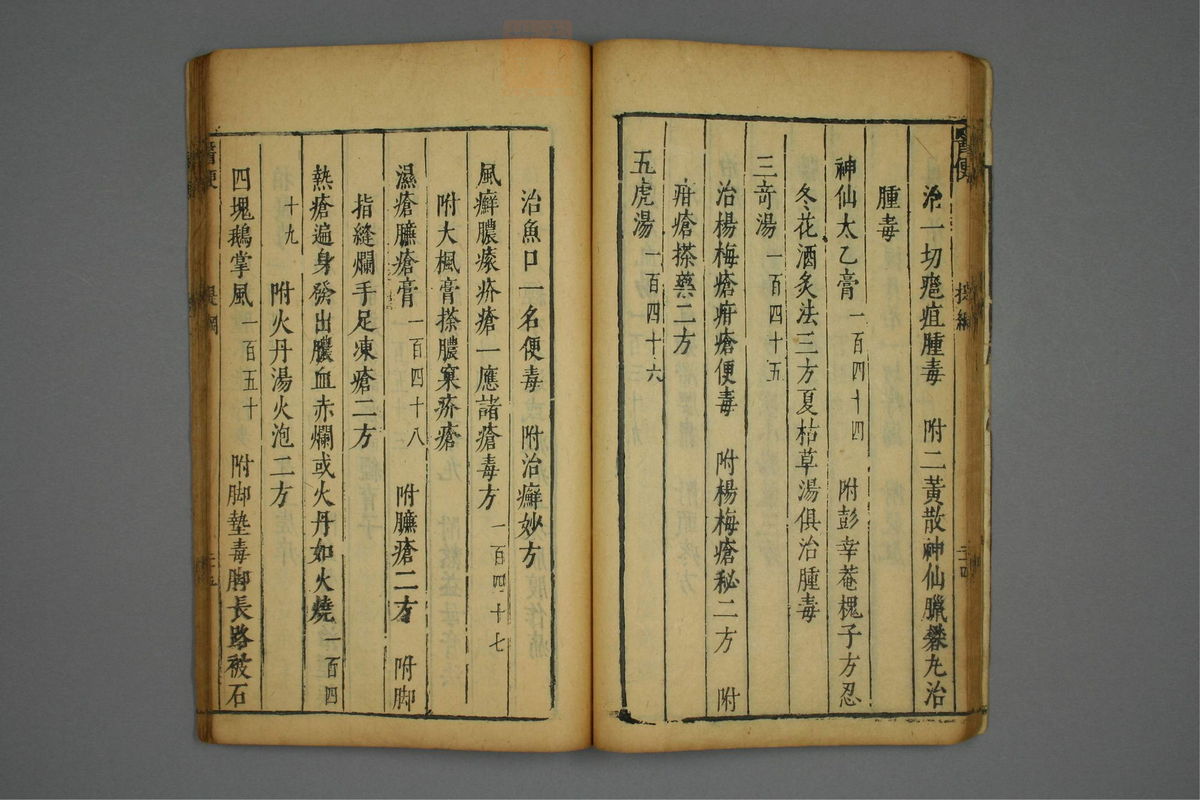 醫便
提綱
二十四
治一切瘡疽腫毒 附二黃散神仙臘礬丸治
腫毒
神仙太乙膏一百四十四 附彭幸菴槐子方忍
冬花酒炙法三方夏枯草湯俱治腫毒
三奇湯一百四十五
治楊梅瘡疳瘡便毒 附楊梅瘡秘二方 附
疳瘡搽藥二方
五虎湯一百四十六
治魚口一名便毒 附治癬妙方
風癬膿瘡疥瘡一應諸瘡毒方一百四十七
附大楓膏搽膿窠疥瘡
濕瘡臁瘡膏一百四十八 附臁瘡二方 附脚
指縫爛手足凍瘡二方
熱瘡遍身發出膿血赤爛或火丹如火燒一百四
十九 附火丹湯火泡二方
四塊鵝掌風一百五十 附脚墊毒脚長路被石
醫便
提綱